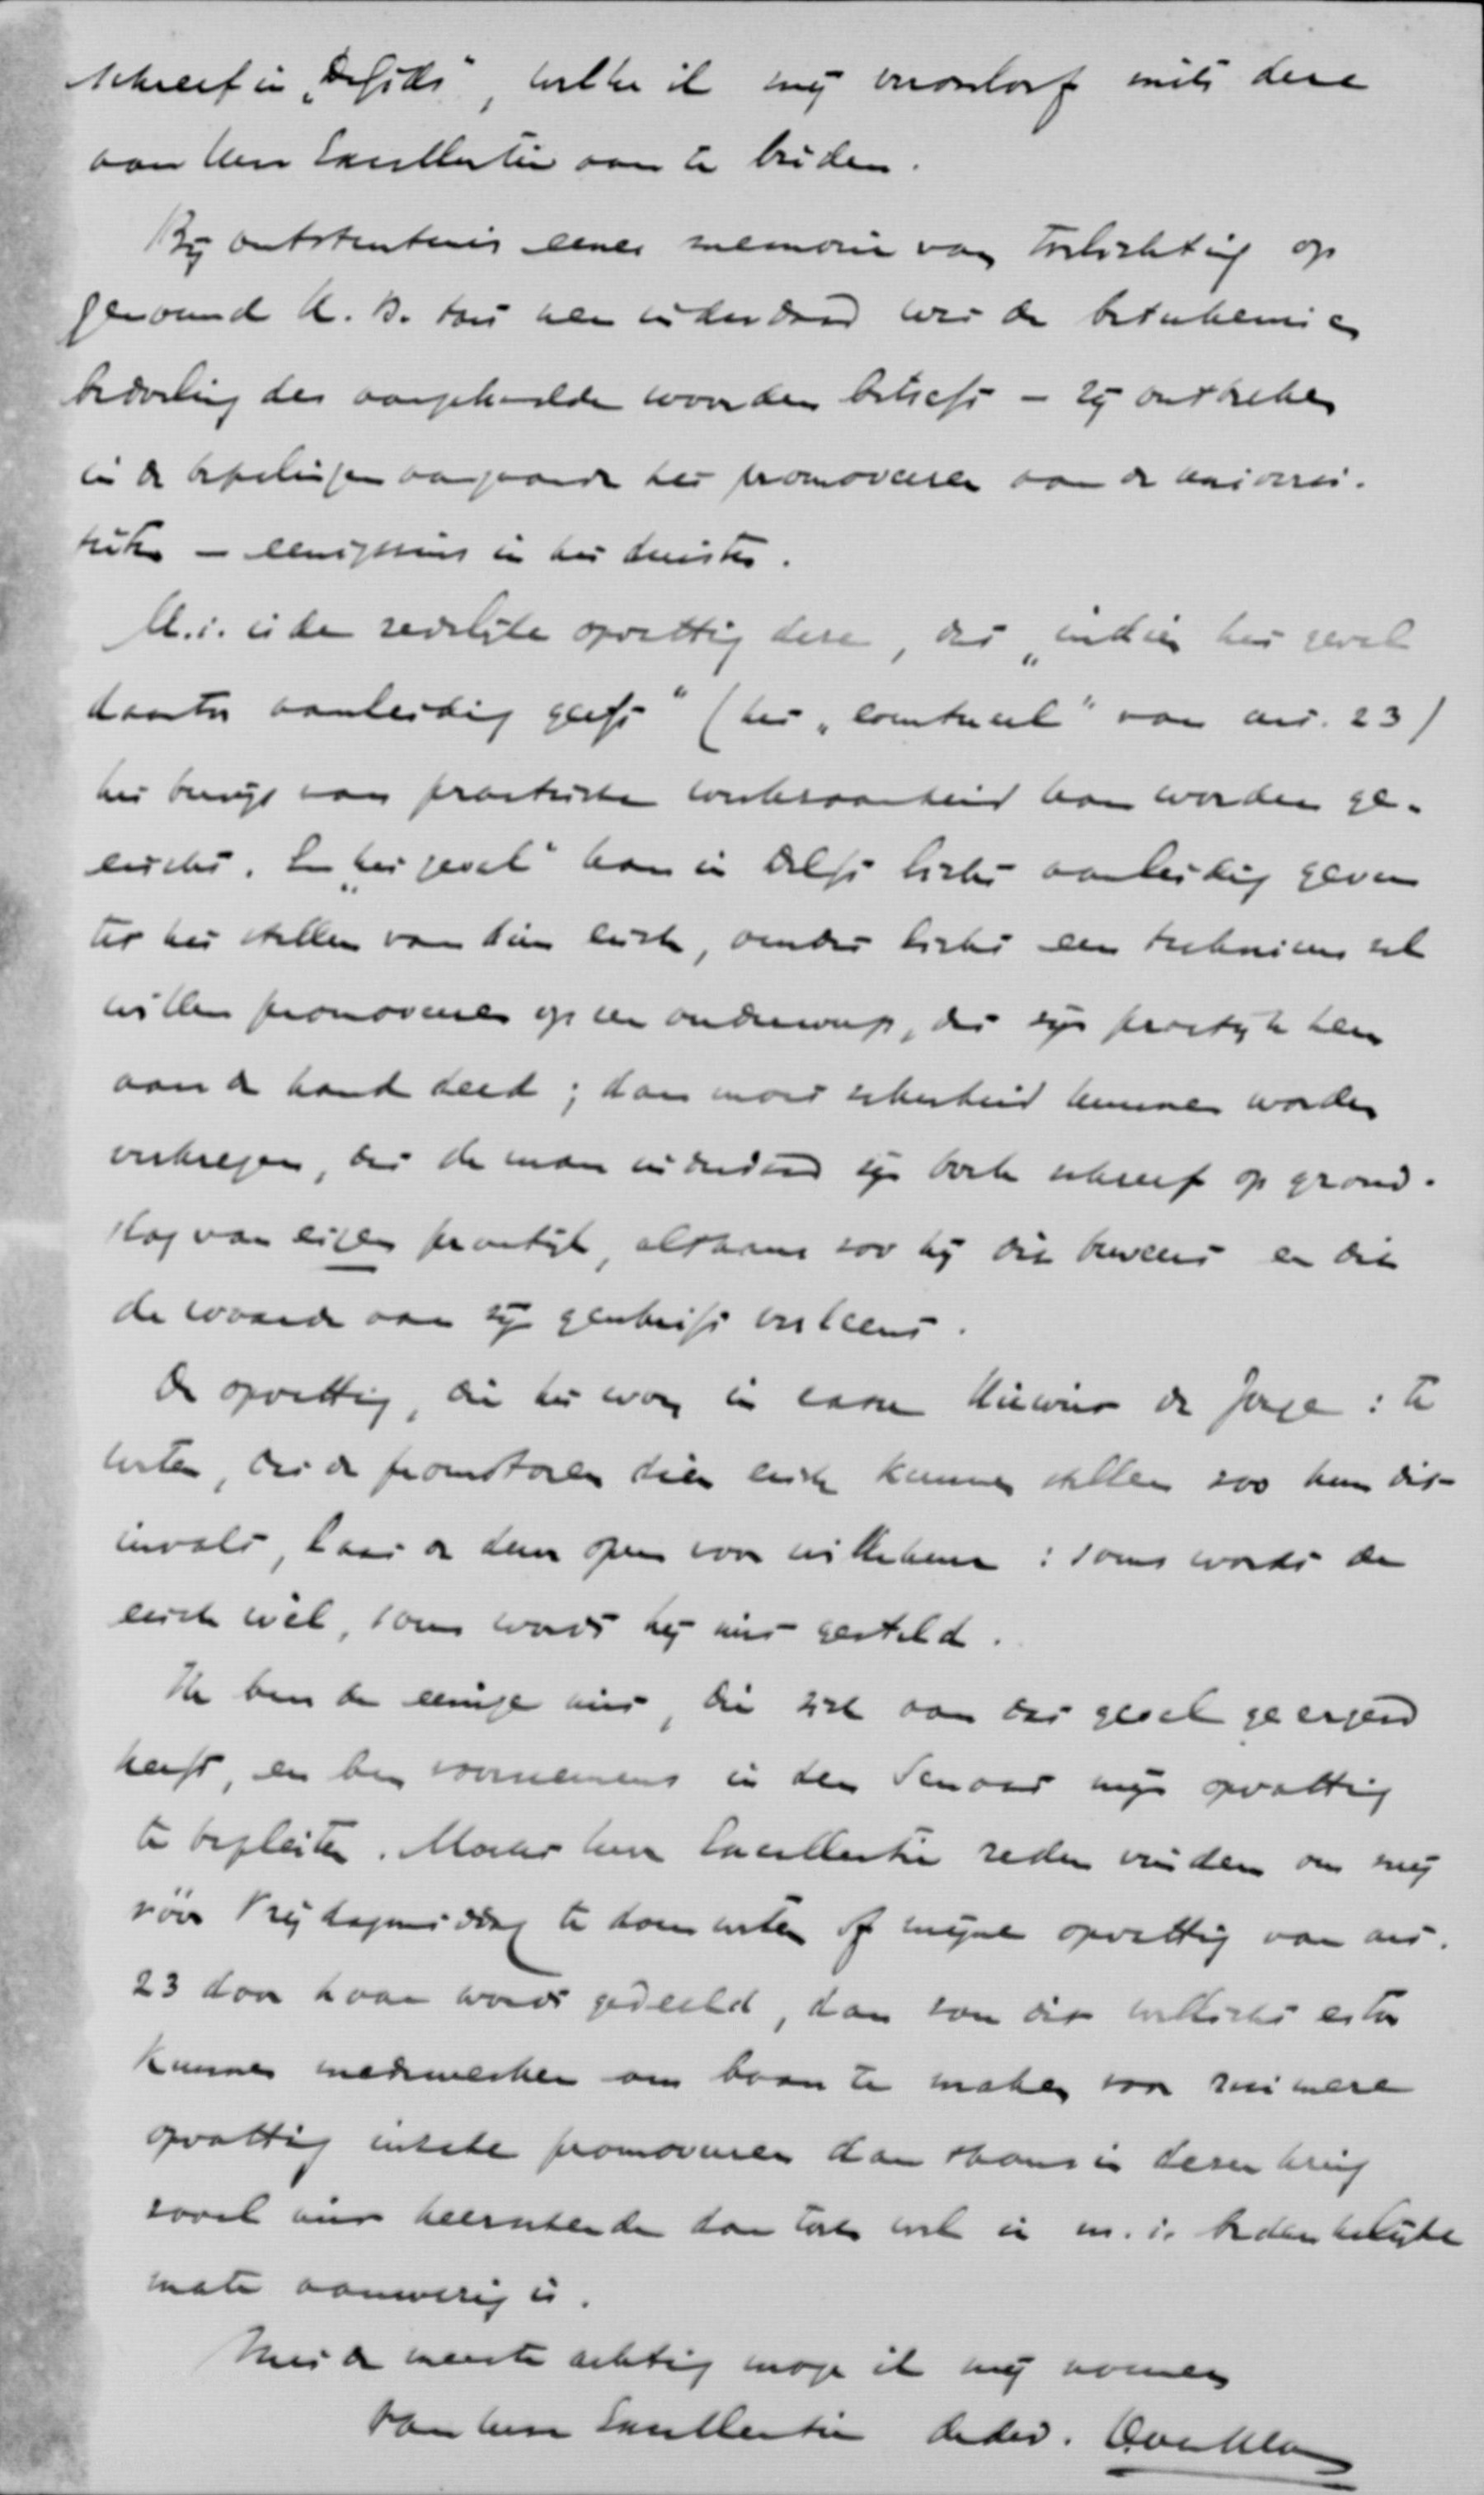 schreef in „De Gids", welke ik mij veroorloof mits deze
aan Uwe Excellentie aan te bieden.
Bij ontstentenis eener memorie van toelichting op
genoemd K.B. tast men inderdaad wat de beteekenis en
bedoeling der aangehaalde woorden betreft — zij ontbreken
in de bepalingen aangaande het promoveeren aan de universi-
teiten — eenigszins in het duister.
M.i. is de redelijke opvatting deze, dat „indien het geval
daartoe aanleiding geeft" (het „eventueel" van art. 23)
het bewijs van practische werkzaamheid kan worden ge-
eischt. En „het geval" kan in Delft licht aanleiding geven
tot het stellen van dien eisch, omdat licht een technicus zal
willen promoveeren op een onderwerp, dat zijn practijk hem
aan de hand deed; dan moet zekerheid kunnen worden
verkregen, dat de man inderdaad zijn boek schreef op grond-
slag van eigen practijk, althans zoo hij dit beweert en dit
de waarde aan zijn geschrift verleent.
De opvatting, die het won in casu de Jonge: te
weten, dat de promotoren dien eisch kunnen stellen zoo hun dit
invalt, laat de deur open voor willekeur: soms wordt de
eisch wèl, soms wordt hij niet gesteld.
Ik ben de eenige niet, die zich aan dat geval geergerd
heeft, en ben voornemens in den Senaat mijn opvatting
te bepleiten. Mocht Uwe Excellentie reden vinden om mij
vóór Vrijdagmiddag te doen weten of mijne opvatting van art.
23 door haar wordt gedeeld, dan zou dit wellicht ertoe
kunnen medewerken om baan te maken voor ruimere
opvatting inzake promoveeren dan thans in dezen kring
zooal niet heerschende dan toch wel in m.i. bedenkelijke
mate aanwezig is.
Met de meeste achting moge ik mij noemen
van Uwe Excellentie de dw.